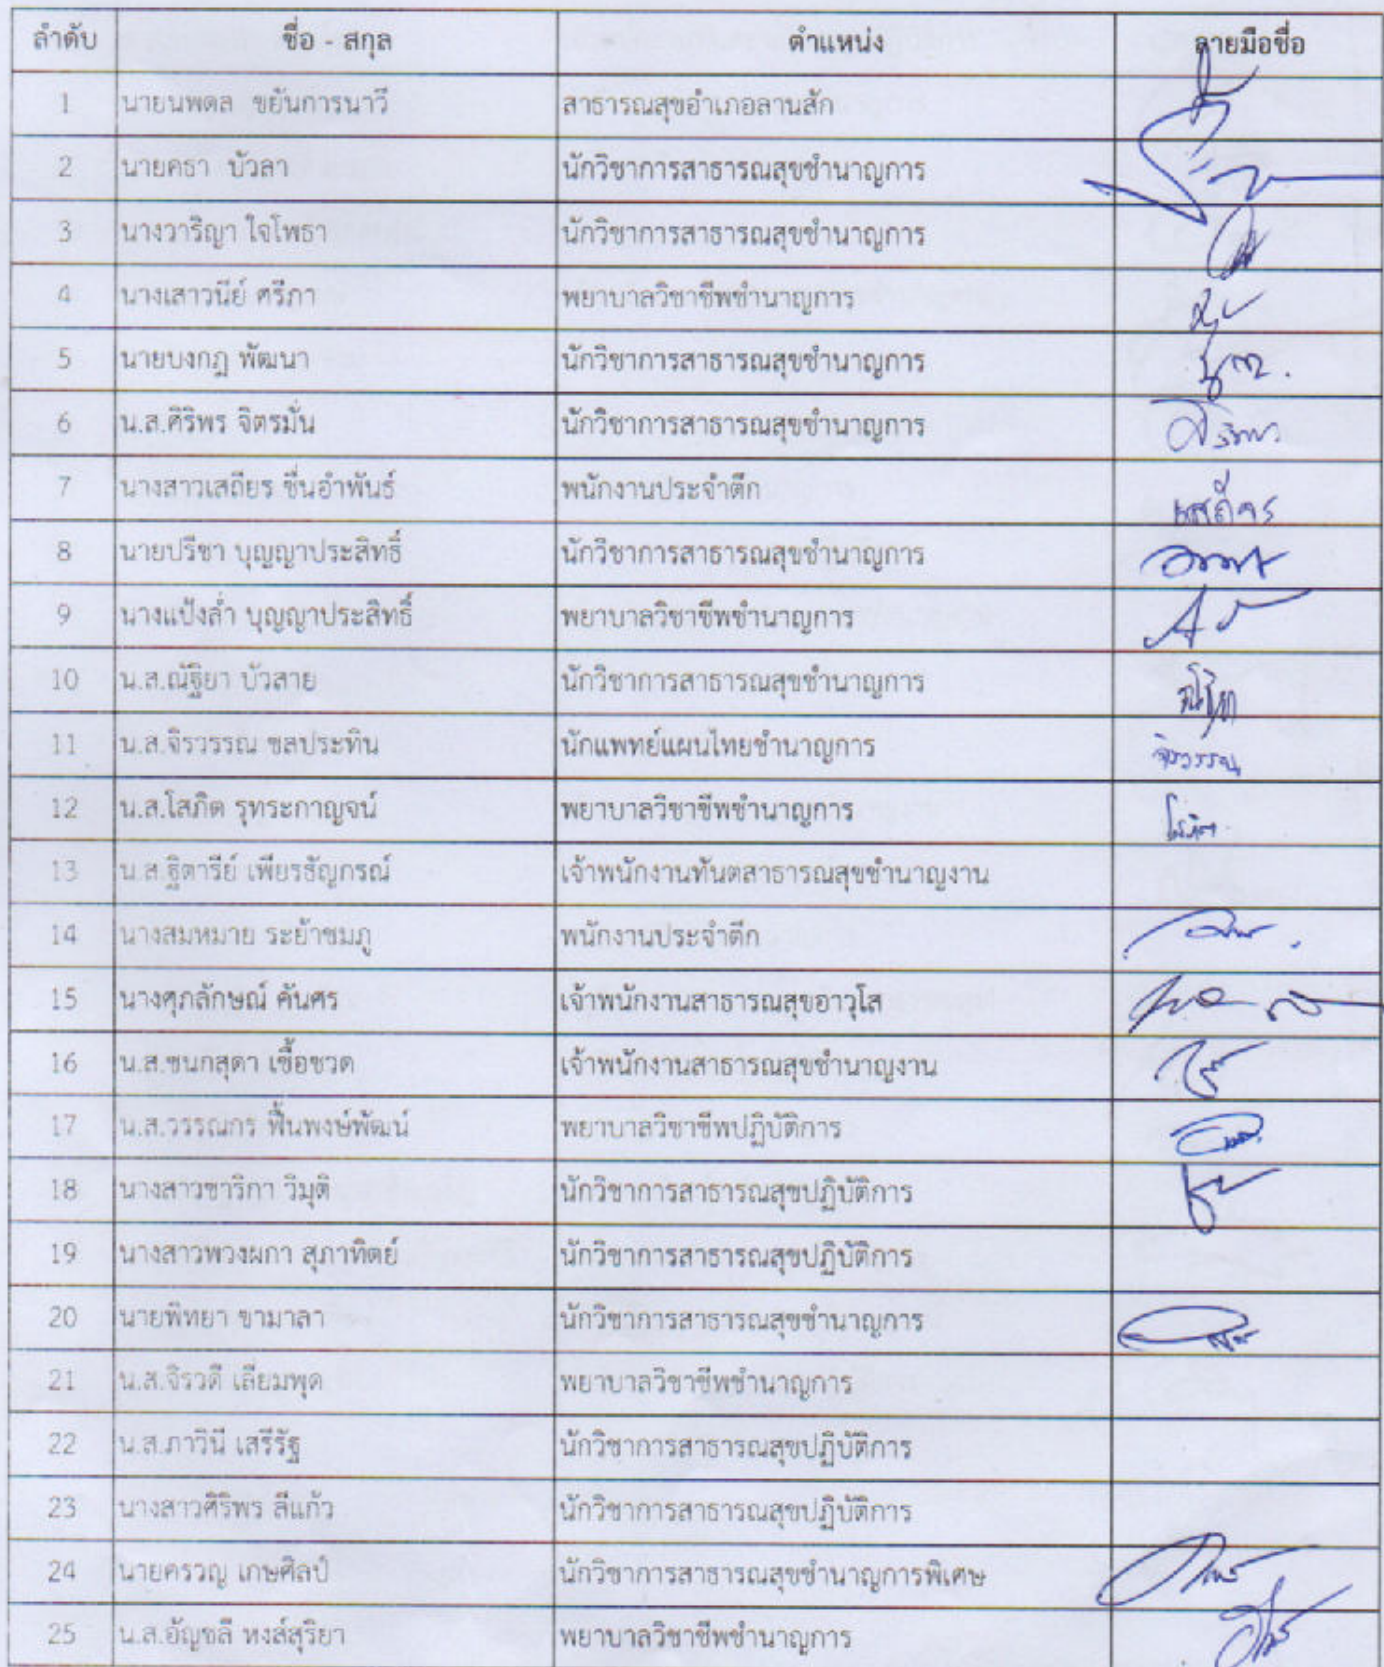 ลำดับ ชื่อ - สกุล ตำแหน่ง ลายมือชื่อ
1 นายนพดล ขยันการนาวี สาธารณสุขอำเภอลานสัก
2 นายคธา บัวลา นักวิชาการสาธารณสุขชำนาญการ
3 นางวาริญา ใจโพธา นักวิชาการสาธารณสุขชำนาญการ
4 นางเสาวนีย์ ศรีภา พยาบาลวิชาชีพชำนาญการ
5 นายบงกฎ พัฒนา นักวิชาการสาธารณสุขชำนาญการ
6 น.ส.ศิริพร จิตรมั่น นักวิชาการสาธารณสุขชำนาญการ
7 นางสาวเสถียร ชื่นอำพันธ์ พนักงานประจำตึก เสถียร
8 นายปรีชา บุญญาประสิทธิ์ นักวิชาการสาธารณสุขชำนาญการ
9 นางแป้งล่ำ บุญญาประสิทธิ์ พยาบาลวิชาชีพชำนาญการ
10 น.ส.ณัฐิยา บัวสาย นักวิชาการสาธารณสุขชำนาญการ ณัฐิยา
11 น.ส.จิรวรรณ ชลประทิน นักแพทย์แผนไทยชำนาญการ จิรวรรณ
12 น.ส.โสภิต รุทระกาญจน์ พยาบาลวิชาชีพชำนาญการ โสภิต
13 น.ส.ฐิตารีย์ เพียรธัญกรณ์ เจ้าพนักงานทันตสาธารณสุขชำนาญงาน
14 นางสมหมาย ระย้าชมภู พนักงานประจำตึก
15 นางศุภลักษณ์ คันศร เจ้าพนักงานสาธารณสุขอาวุโส
16 น.ส.ชนกสุดา เชื้อชวด เจ้าพนักงานสาธารณสุขชำนาญงาน
17 น.ส.วรรณกร ฟื้นพงษ์พัฒน์ พยาบาลวิชาชีพปฏิบัติการ
18 นางสาวชาริกา วิมุติ นักวิชาการสาธารณสุขปฏิบัติการ
19 นางสาวพวงผกา สุภาทิตย์ นักวิชาการสาธารณสุขปฏิบัติการ
20 นายพิทยา ขามาลา นักวิชาการสาธารณสุขชำนาญการ
21 น.ส.จิรวดี เลียมพุด พยาบาลวิชาชีพชำนาญการ
22 น.ส.ภาวินี เสรีรัฐ นักวิชาการสาธารณสุขปฏิบัติการ
23 นางสาวศิริพร ลีแก้ว นักวิชาการสาธารณสุขปฏิบัติการ
24 นายครวญ เกษศิลป์ นักวิชาการสาธารณสุขชำนาญการพิเศษ
25 น.ส.อัญชลี หงส์สุริยา พยาบาลวิชาชีพชำนาญการ